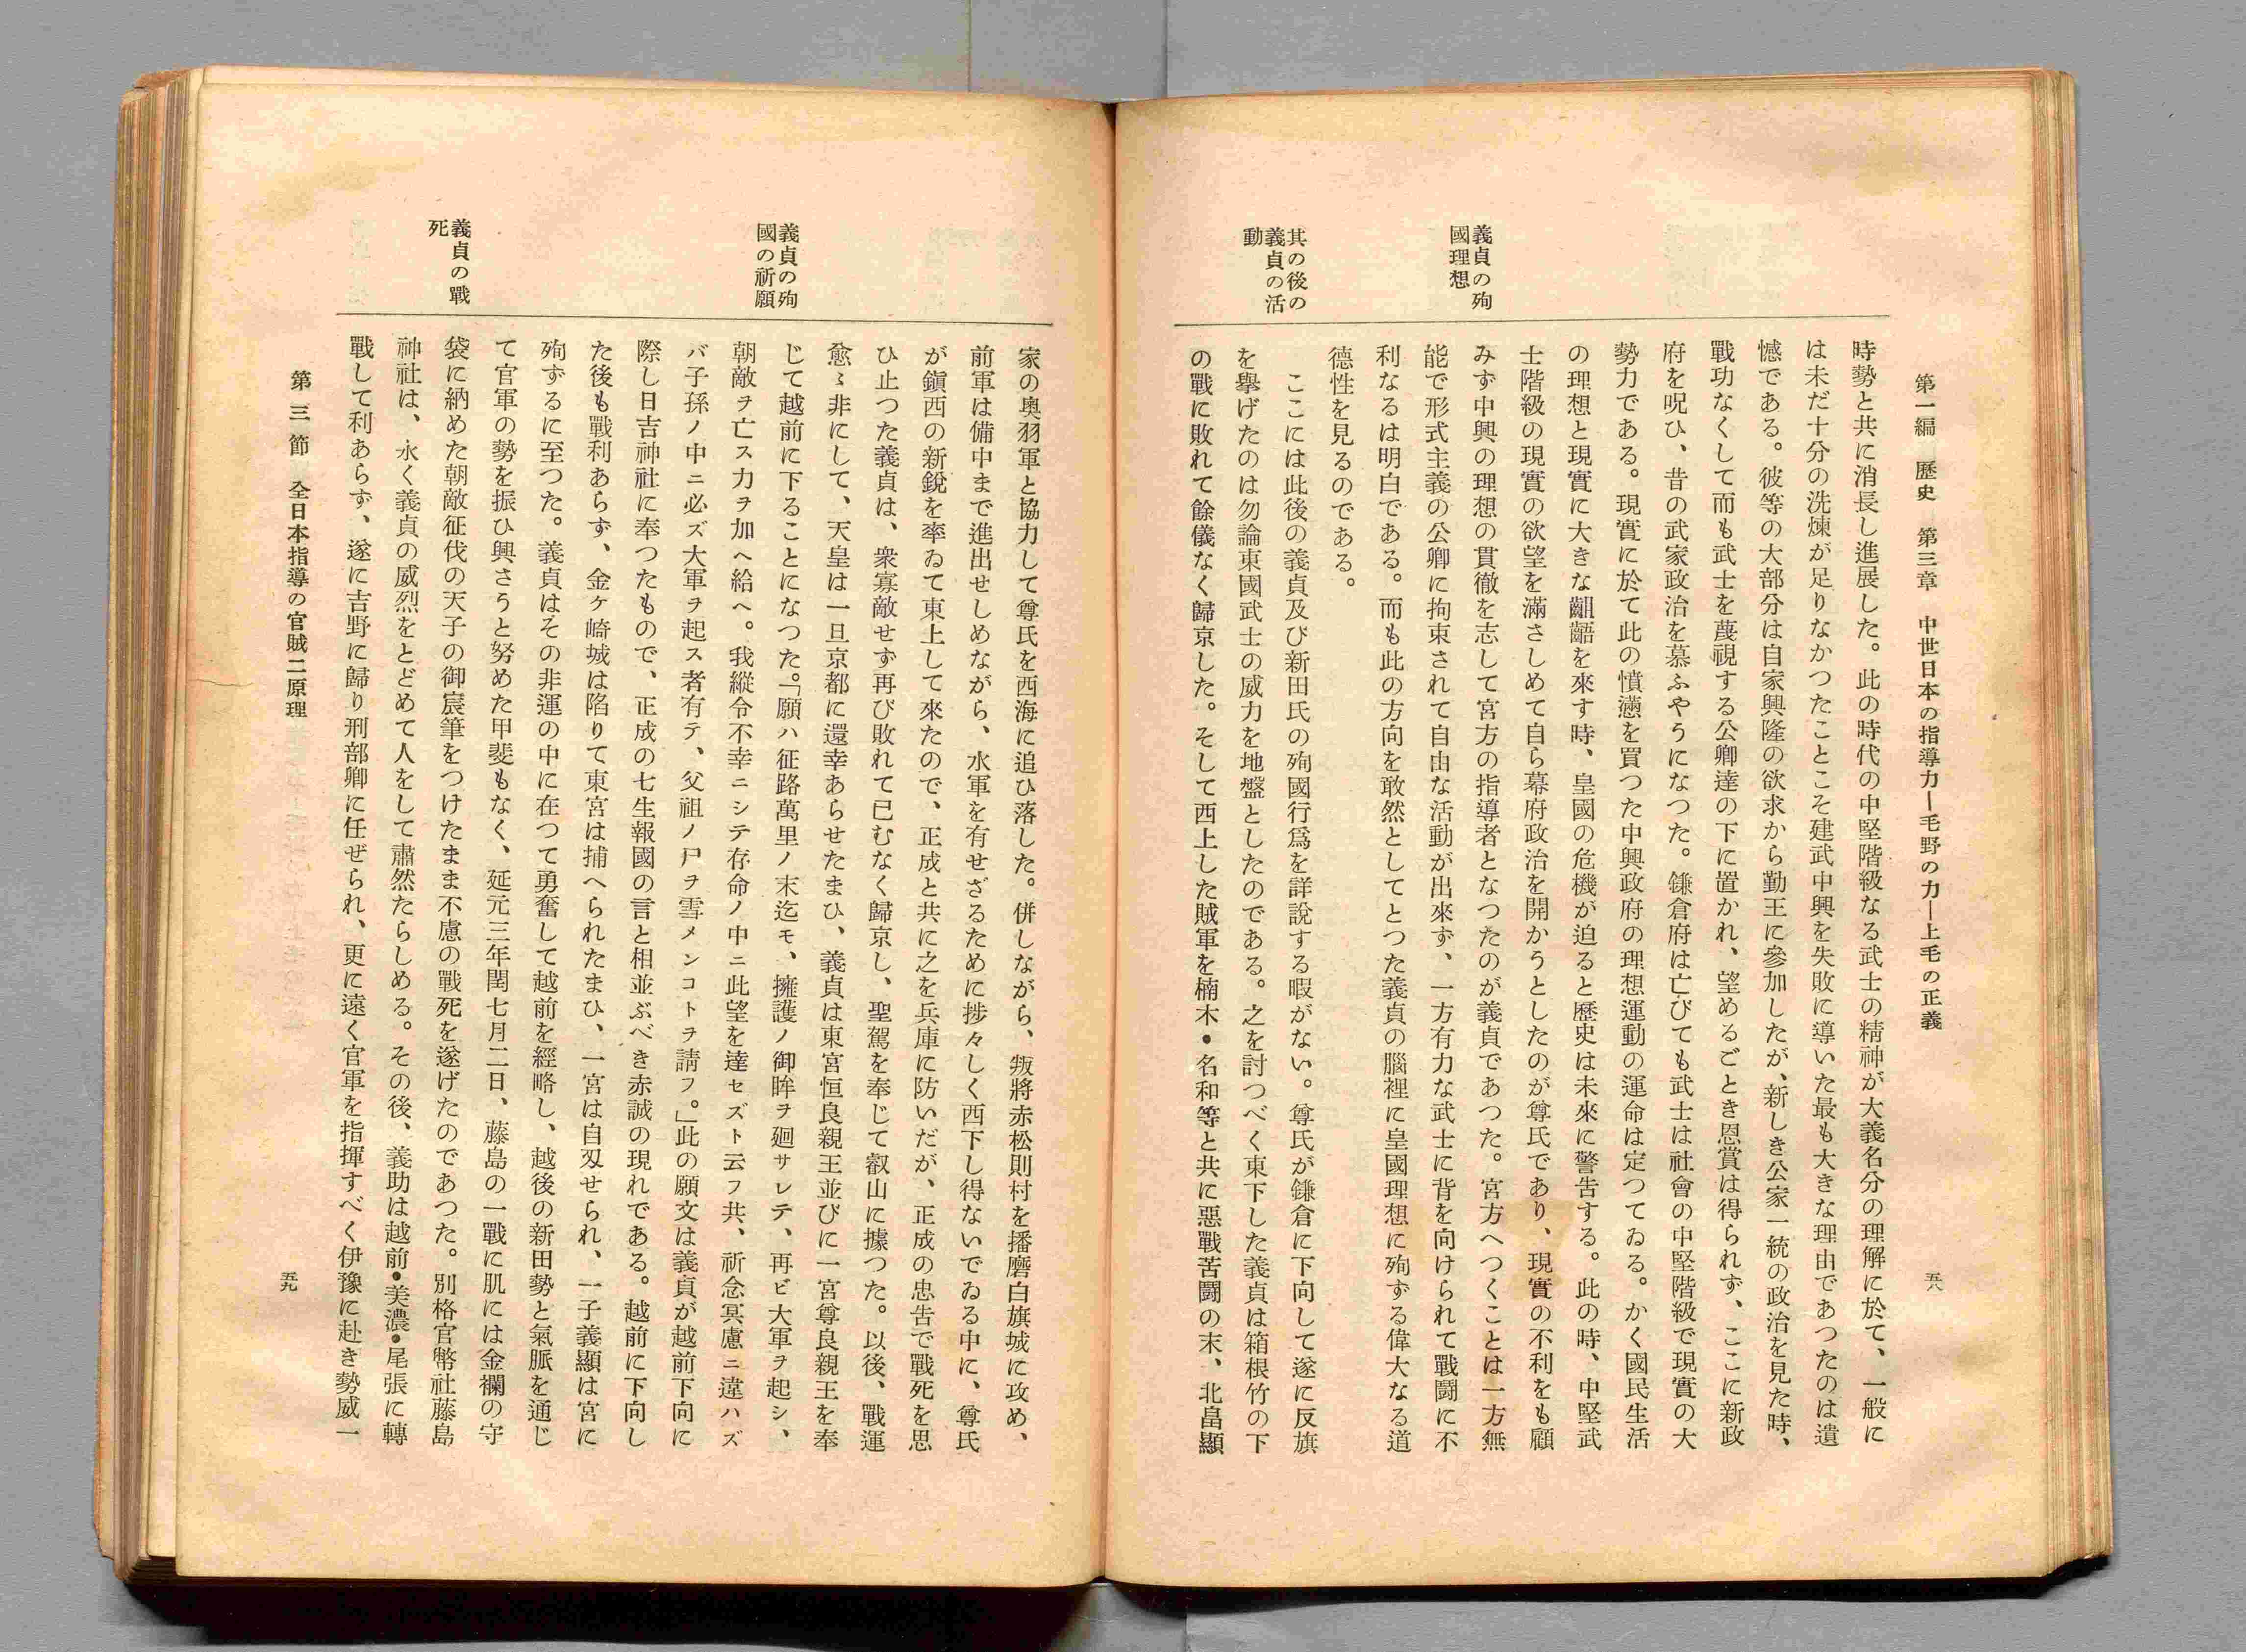 第一編　歷史　第三章　中世日本の指導力―毛野の力―上毛の正義
五八
義貞の殉
國理想
其の後の
義貞の活
動
時勢と共に消長し進展した。此の時代の中堅階級なる武士の精神が大義名分の理解に於て、一般に
は未だ十分の洗煉が足りなかつたことこそ建武中興を失敗に導いた最も大きな理由であつたのは遺
憾である。彼等の大部分は自家興隆の欲求から勤王に參加したが、新しき公家一統の政治を見た時、
戰功なくして而も武士を蔑視する公卿達の下に置かれ、望めるごとき恩賞は得られず、ここに新政
府を呪ひ、昔の武家政治を慕ふやうになつた。鎌倉府は亡びても武士は社會の中堅階級で現實の大
勢力である。現實に於て此の憤懣を買つた中興政府の理想運動の運命は定つてゐる。かく國民生活
の理想と現實に大きな齟齬を來す時、皇國の危機が迫ると歷史は未來に警告する。此の時、中堅武
士階級の現實の欲望を滿さしめて自ら幕府政治を開かうとしたのが尊氏であり、現實の不利をも顧
みず中興の理想の貫徹を志して宮方の指導者となつたのが義貞であつた。宮方へつくことは一方無
能で形式主義の公卿に拘束されて自由な活動が出來ず、一方有力な武士に背を向けられて戰鬪に不
利なるは明白である。而も此の方向を敢然としてとつた義貞の腦裡に皇國理想に殉ずる偉大なる道
德性を見るのである。
ここには此後の義貞及び新田氏の殉國行爲を詳說する暇がない。尊氏が鎌倉に下向して遂に反旗
を擧げたのは勿論東國武士の威力を地盤としたのである。之を討つべく東下した義貞は箱根竹の下
の戰に敗れて餘儀なく歸京した。そして西上した賊軍を楠木・名和等と共に惡戰苦鬪の末、北畠顯
義貞の殉
國の祈願
義貞の戰
死
家の奥羽軍と協力して尊氏を西海に追ひ落した。併しながら、叛將赤松則村を播磨白旗城に攻め、
前軍は備中まで進出せしめながら、水軍を有せざるために捗々しく西下し得ないでゐる中に、尊氏
が鎭西の新銳を率ゐて東上して來たので、正成と共に之を兵庫に防いだが、正成の忠告で戰死を思
ひ止つた義貞は、衆寡敵せず再び敗れて已むなく歸京し、聖駕を奉じて叡山に據つた。以後、戰運
愈〻非にして、天皇は一旦京都に還幸あらせたまひ、義貞は東宮恒良親王並びに一宮尊良親王を奉
じて越前に下ることになつた。「願ハ征路萬里ノ末迄モ、擁護ノ御眸ヲ廻サレテ、再ビ大軍ヲ起シ、
朝敵ヲ亡ス力ヲ加へ給へ。我縱令不幸ニシテ存命ノ中ニ此望を達セズト云フ共、祈念冥慮ニ違ハズ
バ子孫ノ中ニ必ズ大軍ヲ起ス者有テ、父祖ノ尸ヲ雪メンコトヲ請フ。」此の願文は義貞が越前下向に
際し日吉神社に奉つたもので、正成の七生報國の言と相並ぶべき赤誠の現れである。越前に下向し
た後も戰利あらず、金ケ崎城は陷りて東宮は捕へられたまひ、一宮は自刄せられ、一子義顯は宮に
殉ずるに至つた。義貞はその非運の中に在つて勇奮して越前を經略し、越後の新田勢と氣脈を通じ
て官軍の勢を振ひ興さうと努めた甲斐もなく、延元三年閏七月二日、藤島の一戰に肌には金襴の守
袋に納めた朝敵征伐の天子の御宸筆をつけたまま不慮の戰死を遂げたのであつた。別格官幣社藤島
神社は、永く義貞の威烈をとどめて人をして肅然たらしめる。その後、義助は越前・美濃・尾張に轉
戰して利あらず、遂に吉野に歸り刑部卿に任ぜられ、更に遠く官軍を指揮すべく伊豫に赴き勢威一
第三節　全日本指導の官賊二原理
五九